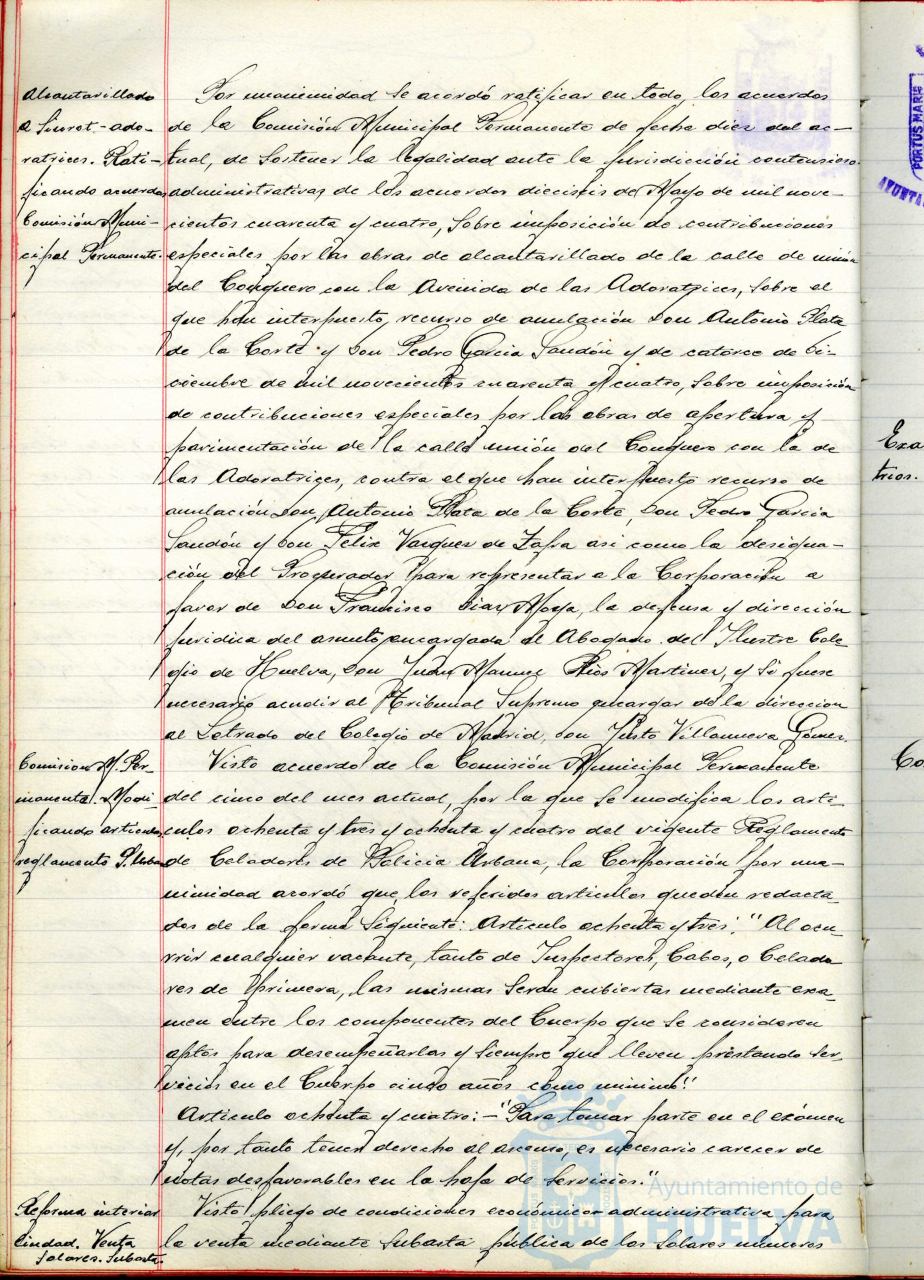 Alcantarillado
a Siurot-ado-
ratrices. Rati-
ficando acuerdo
Comisión Muni-
cipal Permanente.
Por unanimidad se acordó ratificar en todo, los acuerdos
de la Comisión Municipal Permanente de fecha diez del ac-
tual, de sostener la legalidad ante la jurisdicción contencioso
administrativa, de los acuerdos dieciseis de Mayo de mil nove-
cientos cuarenta y cuatro, sobre imposición de contribuciones
especiales por las obras de alcantarillado de la calle de unión
del Conquero con la Avenida de las Adoratrices, sobre el
que han interpuesto, recurso de anulación Don Antonio Plata
de la Corte y Don Pedro Garcia Sandón y de catorce de Di-
ciembre de mil novecientos cuarenta y cuatro, sobre imposición
de contribuciones especiales por las obras de apertura y
pavimentación de la calle unión del Conquero con la de
las Adoratrices, contra el que han interpuesto recurso de
anulación Don Antonio Plata de la Corte, Don Pedro Garcia
Sandón y Don Felix Vazquez de Zafra asi como la designa-
ción del Procurador para representar a la Corporación a
favor de Don Francisco Diaz Moya, la defensa y dirección
juridica del asunto, encargada al Abogado del Ilustre Cole
gio de Huelva, Don Juan Manuel Rios Martinez, y si fuese
necesario acudir al Tribunal Supremo encargar de la direccion
al Letrado del Colegio de Madrid, Don Justo Villanueva Gómez.
Comision M. Per-
manente. Modi
ficando articulos
reglamento P. Urbana
Visto acuerdo de la Comisión Municipal Permanente
del cinco del mes actual, por la que se modifica los arti-
culos ochenta y tres y ochenta y cuatro del vigente Reglamento
de Celadores de Policia Urbana, la Corporación por una-
nimidad acordó que, los referidos articulos queden redacta-
dos de la forma siguiente: Articulo ochenta y tres: "Al ocu-
rrir cualquier vacante, tanto de Inspectores, Cabos, o Celado
res de primera, las mismas serán cubiertas mediante exa-
men entre los componentes del Cuerpo que se consideren
aptos para desempeñarlas y siempre que lleven prestando ser-
vicios en el Cuerpo cinco años como minimo."
Articulo ochenta y cuatro: - "Para tomar parte en el exámen
y, por tanto tener derecho al ascenso, es necesario carecer de
notas desfavorables en la hoja de servicios."
Reforma interior
Ciudad. Venta
Solares. Subasta.
Visto pliego de condiciones económico administrativa para
la venta mediante subasta pública de los solares números
Exa
trios.
Co
PORTUS MARIS
AYUNTA
Ayuntamiento de
HUELVA